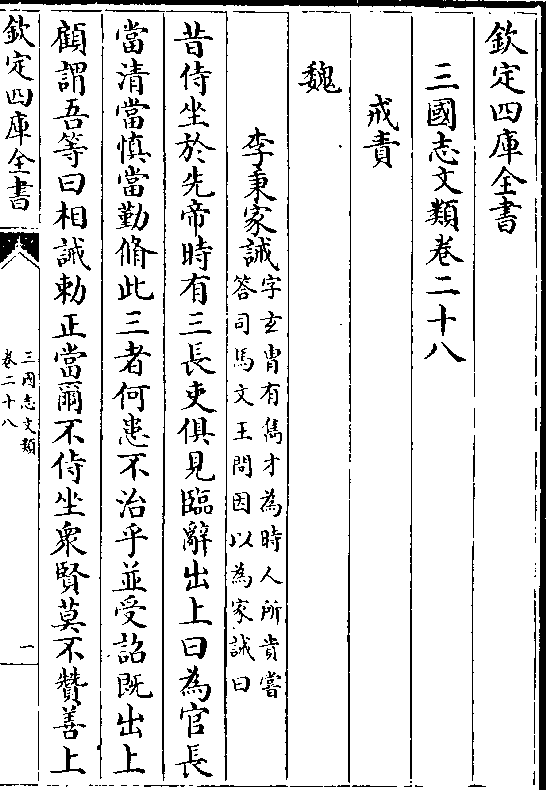 欽定四庫全書
三國志文類卷二十八
戒責
魏
李秉家誡
字玄胄有雋才為時人所貴嘗
答司馬文王問因以為家誡曰
昔侍坐於先帝時有三長吏俱見臨辭出上曰為官長
當清當慎當勤脩此三者何患不治乎並受詔既出上
顧謂吾等曰相誡勅正當爾不侍坐衆賢莫不贊善上
欽定四庫全書
三國志文類
卷二十八
一